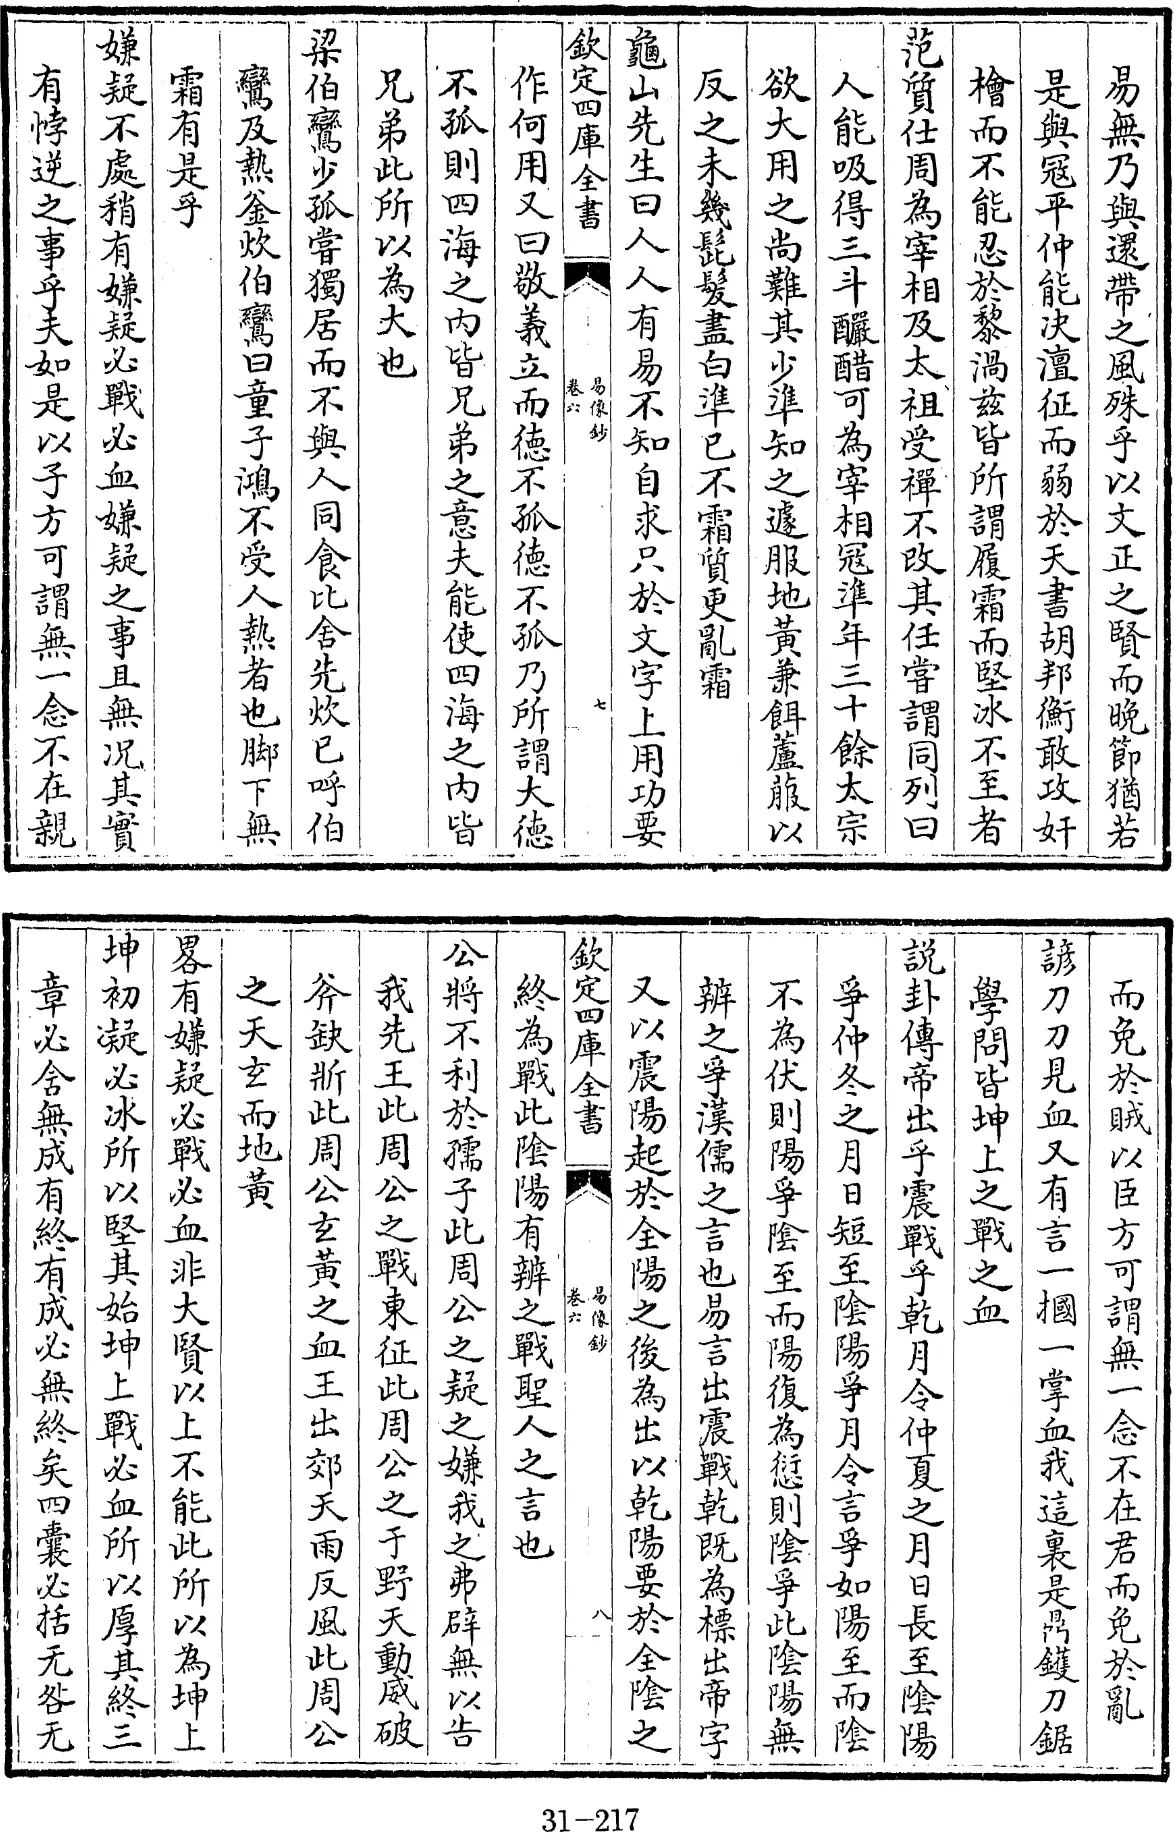 易無乃與還帶之風殊乎以文正之賢而晚節猶若
是與冦平仲能决澶征而弱於天書胡邦衡敢攻奸
檜而不能忍於黎渦兹皆所謂履霜而堅冰不至者
范質仕周為宰相及太祖受禪不改其任嘗謂同列曰
人能吸得三斗釅醋可為宰相冦準年三十餘太宗
欲大用之尚難其少準知之遽服地黄兼餌蘆菔以
反之未幾髭髮盡白準已不霜質更亂霜
龜山先生曰人人有易不知自求只於文字上用功要
欽定四庫全書
易像鈔
卷六
七
作何用又曰敬義立而徳不孤徳不孤乃所謂大徳
不孤則四海之内皆兄弟之意夫能使四海之内皆
兄弟此所以為大也
梁伯鸞少孤嘗獨居而不與人同食比舍先炊已呼伯
鸞及熱釜炊伯鸞曰童子鴻不受人熱者也脚下無
霜有是乎
嫌疑不處稍有嫌疑必戰必血嫌疑之事且無况其實
有悖逆之事乎夫如是以子方可謂無一念不在親
而免於賊以臣方可謂無一念不在君而免於亂
諺刀刀見血又有言一摑一掌血我這裏是鼎鑊刀鋸
學問皆坤上之戰之血
説卦傳帝出乎震戰乎乾月令仲夏之月日長至陰陽
爭仲冬之月日短至陰陽爭月令言爭如陽至而陰
不為伏則陽爭陰至而陽復為愆則陰爭此陰陽無
辨之爭漢儒之言也易言出震戰乾既為標出帝字
又以震陽起於全陽之後為出以乾陽要於全陰之
欽定四庫全書
易像鈔
卷六
八
終為戰此陰陽有辨之戰聖人之言也
公將不利於孺子此周公之疑之嫌我之弗辟無以告
我先王此周公之戰東征此周公之于野天動威破
斧缺斨此周公玄黄之血王出郊天雨反風此周公
之天玄而地黄
畧有嫌疑必戰必血非大賢以上不能此所以為坤上
坤初凝必冰所以堅其始坤上戰必血所以厚其終三
章必含無成有終有成必無終矣四囊必括无咎无
31-217